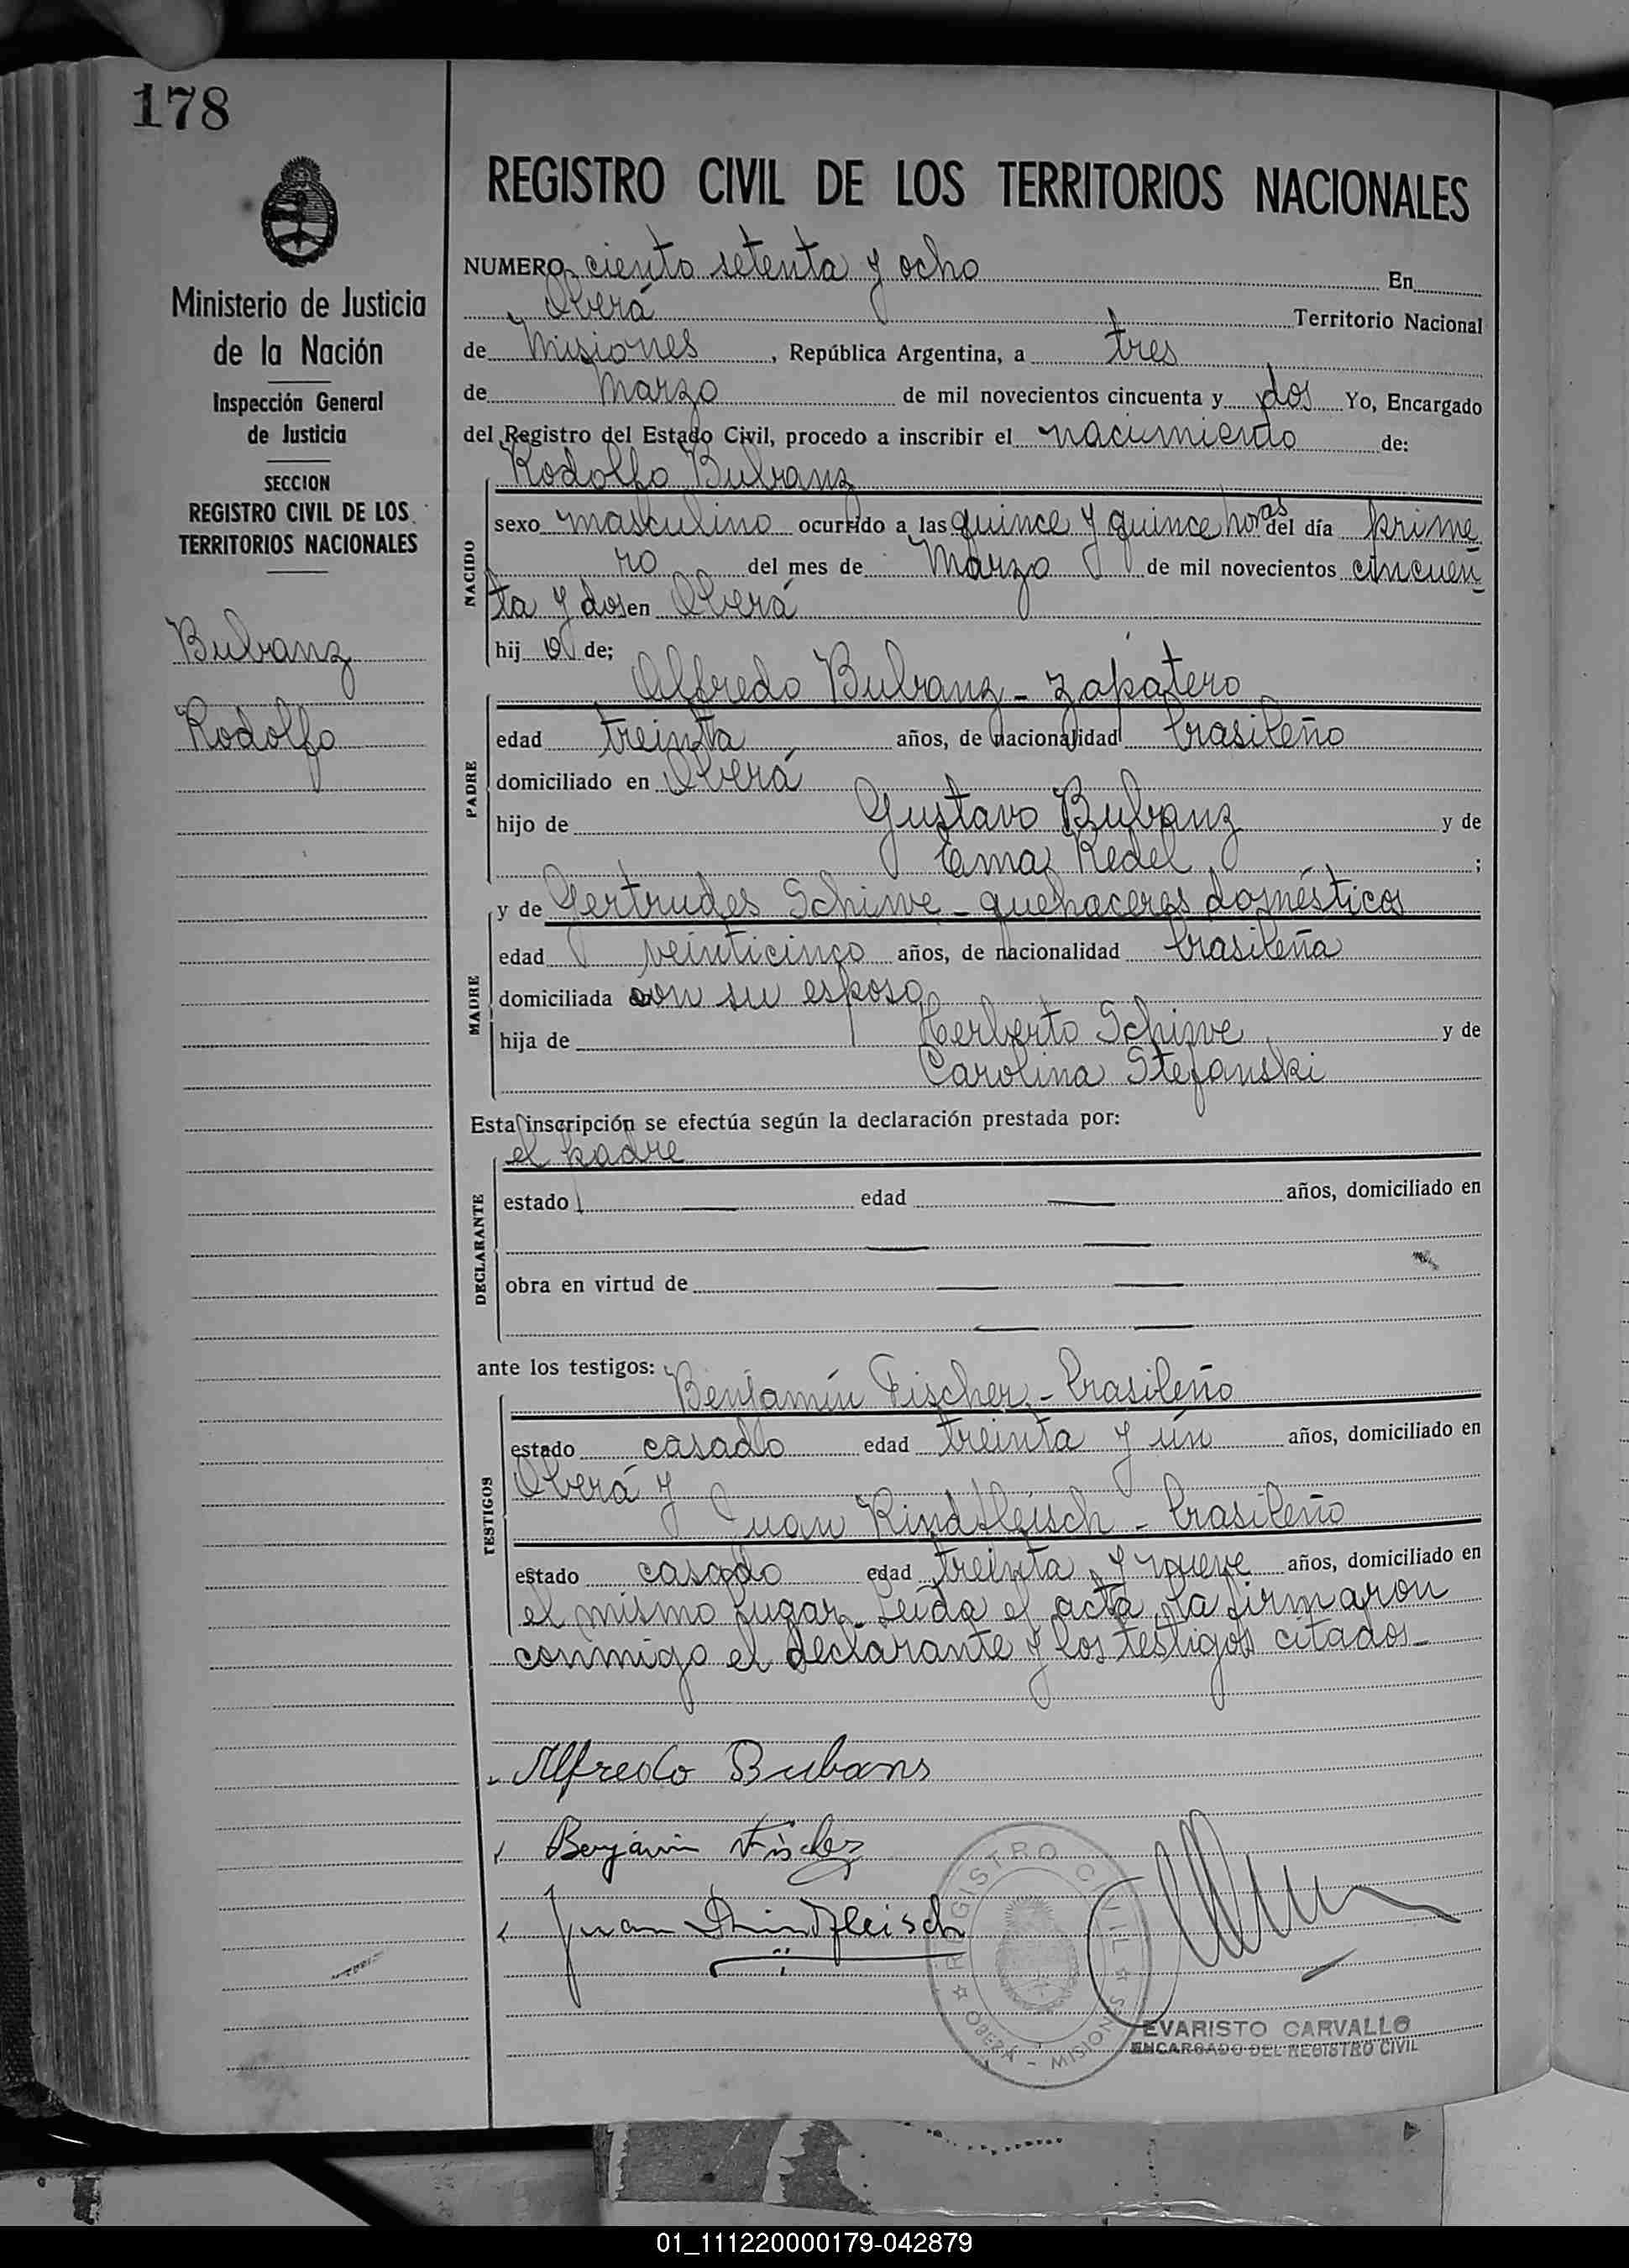 178
Ministerio de Justicia
de la Nación
Inspección General
de Justicia
SECCION
REGISTRO CIVIL DE LOS
TERRITORIOS NACIONALES
Bubanz
Rodolfo
REGISTRO CIVIL DE LOS TERRITORIOS NACIONALES
NUMERO ciento setenta y ocho En
Oberá Territorio Nacional
de Misiones, República Argentina, a tres
de Marzo de mil novecientos cincuenta y dos Yo, Encargado
del Registro del Estado Civil, procedo a inscribir el nacimiento de:
Rodolfo Bubanz
NACIDO
sexo masculino ocurrido a las quince y quince horas del día prime
ro del mes de Marzo de mil novecientos cincuen
ta y dos en Oberá
hij o de;
Alfredo Bubanz - zapatero
PADRE
edad treinta años, de nacionalidad brasileño
domiciliado en Oberá
hijo de Gustavo Bubanz y de
Ema Redel ;
y de Gertrudes Schiwe - quehaceres domésticos
MADRE
edad veinticinco años, de nacionalidad brasileña
domiciliada con su esposo
hija de Herberto Schiwe y de
Carolina Stefanski
Esta inscripción se efectúa según la declaración prestada por:
el padre
DECLARANTE
estado — edad — años, domiciliado en
— —
obra en virtud de — —
— —
ante los testigos:
Benjamín Fischer - brasileño
TESTIGOS
estado casado edad treinta y ún años, domiciliado en
Oberá y
Juan Rindfleisch - brasileño
estado casado edad treinta y nueve años, domiciliado en
el mismo lugar. Leída el acta, la firmaron
conmigo el declarante y los testigos citados-
Alfredo Bubans
Benjamin Fischer
Juan Rindfleisch
REGISTRO CIVIL
OBERÁ - MISIONES
EVARISTO CARVALLO
ENCARGADO DEL REGISTRO CIVIL
01_111220000179-042879